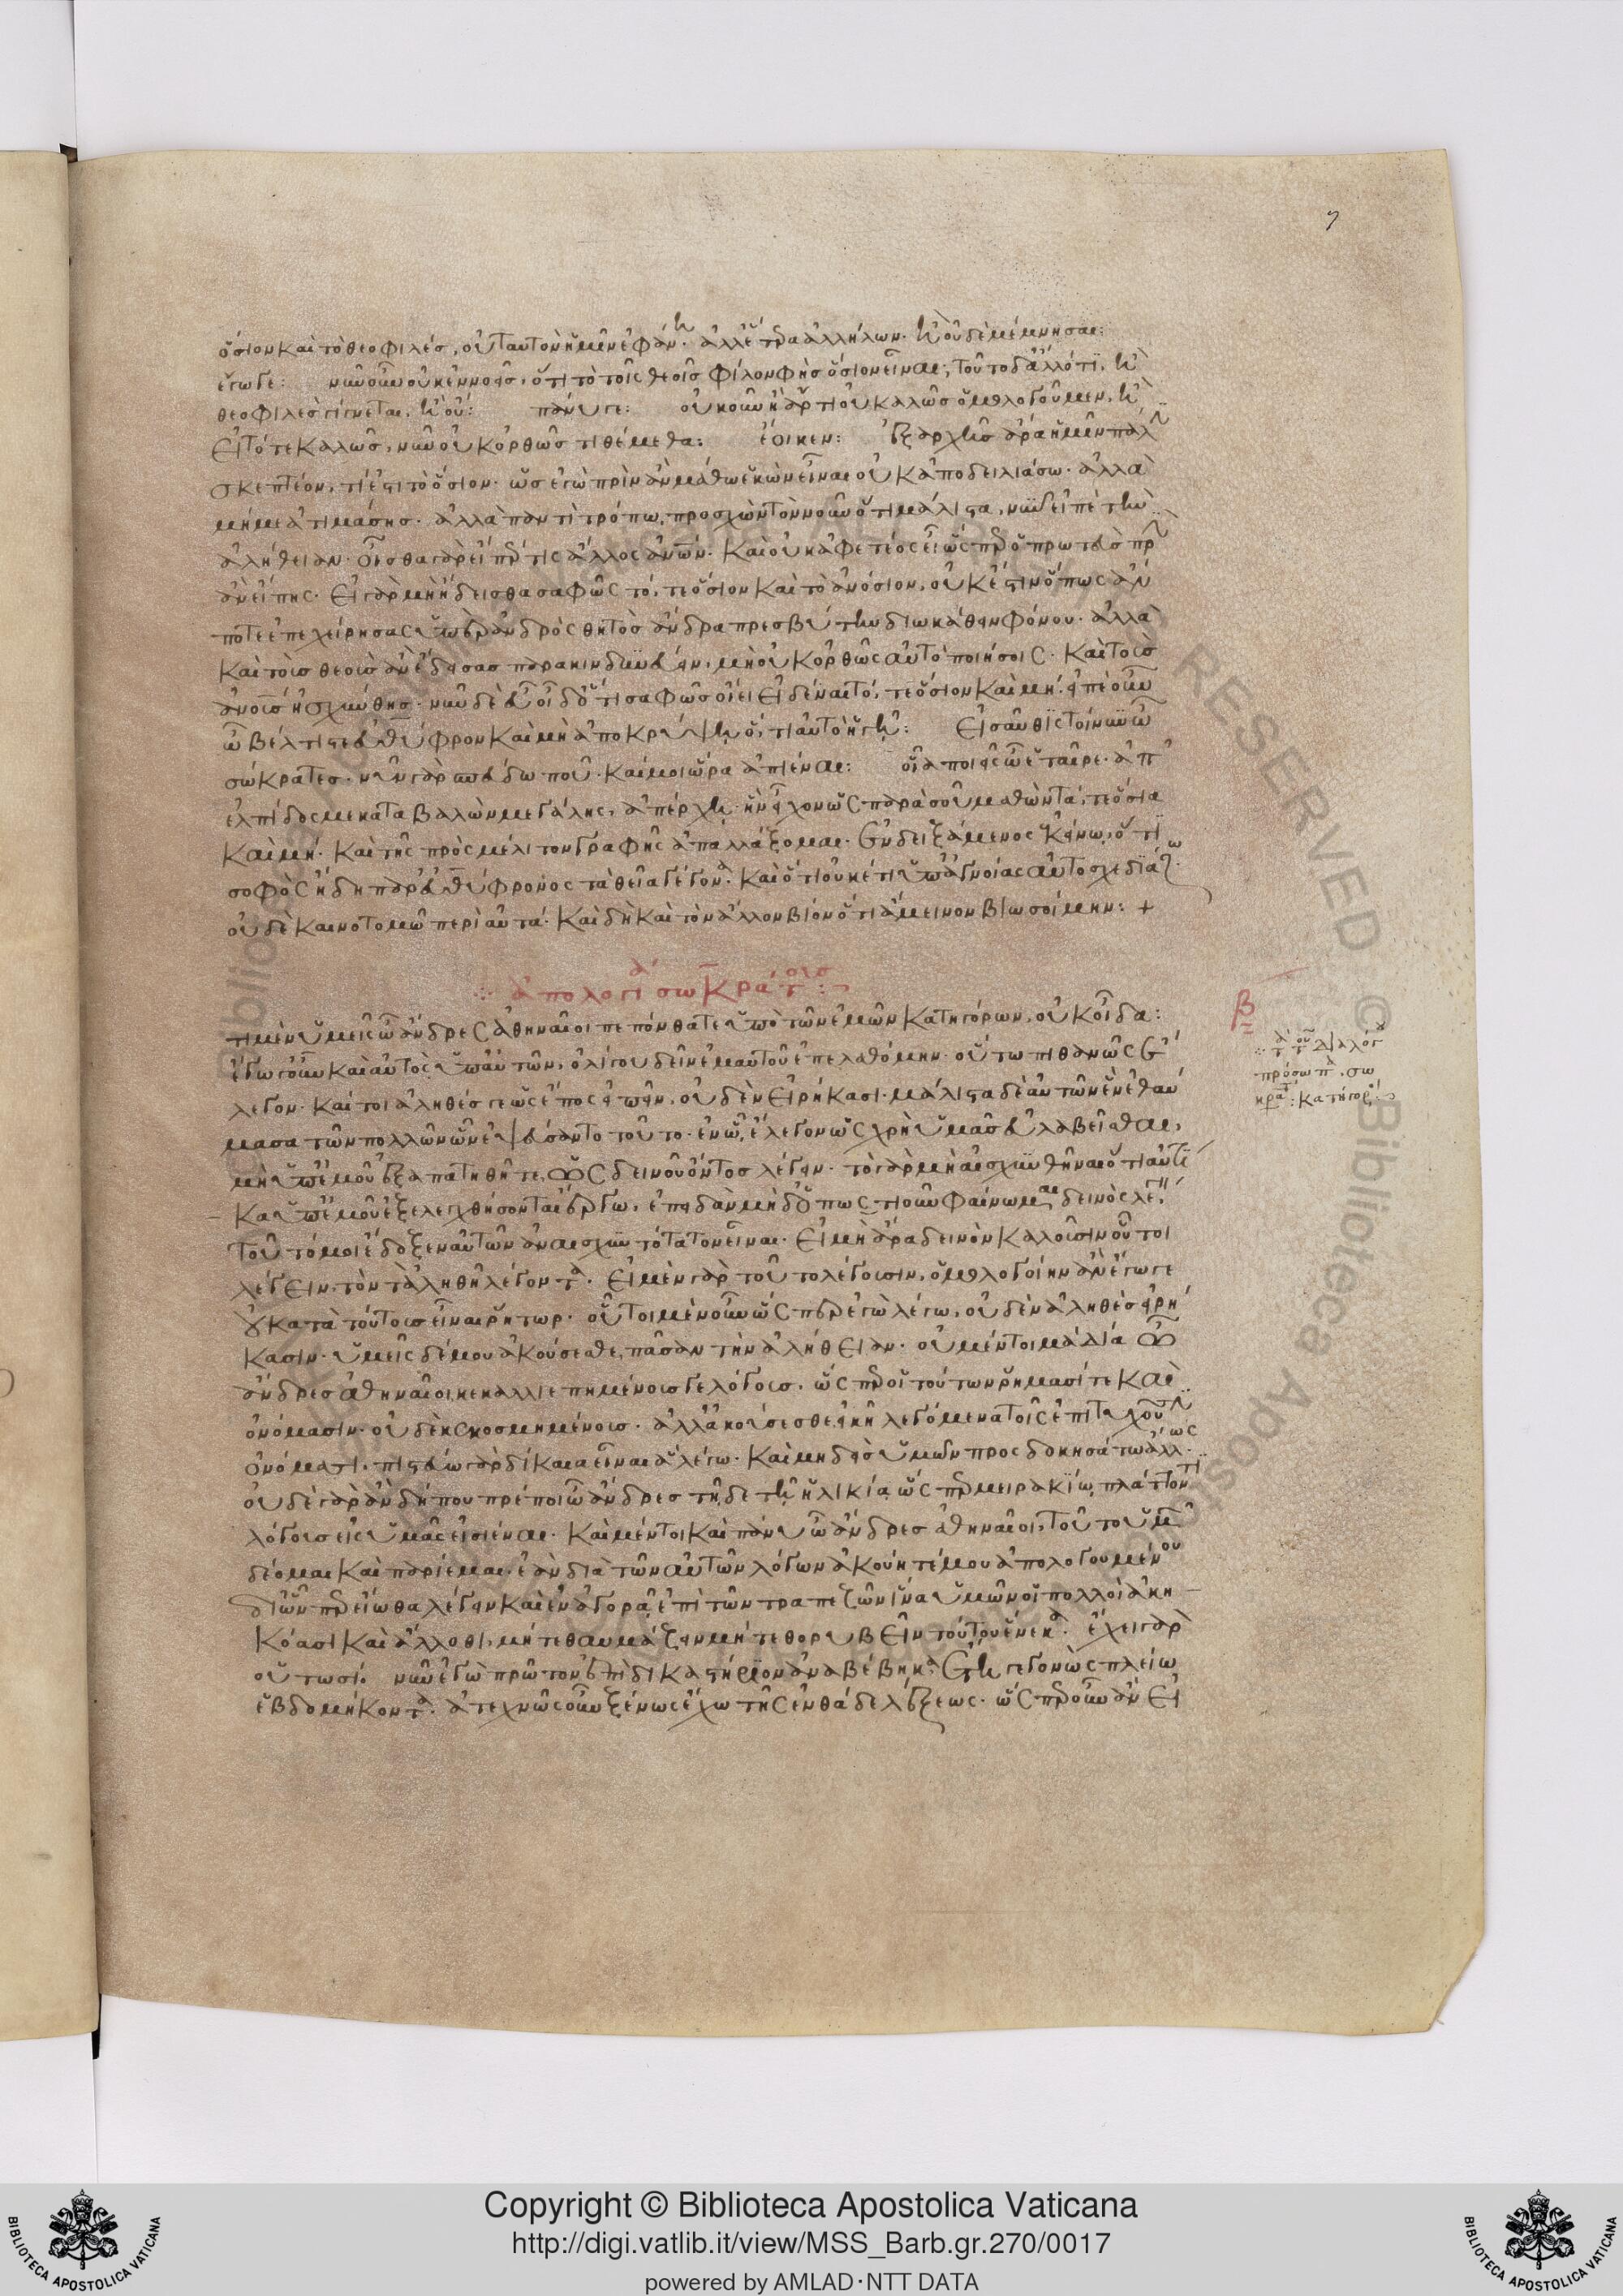 7
ὅσιον καὶ τὸ θεοφιλές, οὐ ταυτὸν ἡμῖν ἐφάνη· ἀλλ' ἕτερα ἀλλήλων· ἢ οὐδὲ μέμνησαι:
ἔγωγε: νῦν οὖν οὐκ ἐννοεῖς, ὅτι τὸ τοῖς θεοῖς φίλον φῂς ὅσιον εἶναι; τοῦτο δ' ἄλλό τι, ἢ
θεοφιλὲς γίγνεται, ἢ οὔ: πάνυ γε: οὐκοῦν ἢ ἄρτι οὐ καλῶς ὁμολογοῦμεν, ἢ
εἰ τότε καλῶς, νῦν οὐκ ὀρθῶς τιθέμεθα: ἔοικεν: ἐξ ἀρχῆς ἄρα ἡμῖν πάλιν
σκεπτέον, τί ἐστι τὸ ὅσιον· ὡς ἐγὼ πρὶν ἂν μάθω ἑκὼν εἶναι οὐκ ἀποδειλιάσω· ἀλλὰ
μή με ἀτιμάσης· ἀλλὰ παντὶ τρόπω, προσχὼν τὸν νοῦν ὅτι μάλιστα, νῦν εἰπὲ τὴν
ἀλήθειαν· οἶσθα γὰρ εἴπέρ τις ἄλλος ἀνων· καὶ οὐκ ἀφετέος εἶ ὥσπερ ὁ πρωτεὺς πρὶν
ἂν εἴπης· εἰ γὰρ μὴ ἤδεισθα σαφῶς τό, τε ὅσιον καὶ τὸ ἀνόσιον, οὐκ ἔστιν ὅπως ἄν
ποτε ἐπεχείρησας ὑπὲρ ἀνδρὸς θητὸς ἄνδρα πρεσβύτην διωκάθειν φόνου· ἀλλὰ
καὶ τοὺς θεοὺς ἂν ἔδεισας παρακινδυνεύειν, μὴ οὐκ ὀρθῶς αὐτὸ ποιήσοις· καὶ τοὺς
ἀνους ἠσχύνθης· νῦν δὲ εὖ οἶδ' ὅτι σαφῶς οἴει εἰδέναι τό, τε ὅσιον καὶ μή· εἰπὲ οὖν
ὦ βέλτιστε εὐθύφρον καὶ μὴ ἀποκρύψη ὅ, τι αὐτὸ ἡγῆ: εἰσαῦθις τοίνυν ὦ
σώκρατες· νῦν γὰρ σπεύδω ποῦ· καί μοι ὥρα ἀπιέναι: οἷα ποιεῖς ὦ ἑταῖρε· ἀπ'
ἐλπίδος με καταβαλὼν μεγάλης, ἀπέρχη· ἣν εἶχον ὡς παρὰ σοῦ μαθὼν τά, τε ὅσια
καὶ μή· καὶ τῆς πρὸς μέλιτον γραφῆς ἀπαλλάξομαι· ἐνδειξάμενος ἐκείνω, ὅτι
σοφὸς ἤδη παρ' εὐθύφρονος τὰ θεῖα γέγονα· καὶ ὅτι οὐκέτι ὑπ' ἀγνοίας αὐτοσχεδιάζω·
οὐδὲ καινοτομῶ περὶ αὐτά· καὶ δὴ καὶ τὸν ἄλλον βίον ὅτι ἄμεινον βιωσοίμην: +
ἀπολογία σωκράτους:
β
τί μὲν ὑμεῖς ὦ ἄνδρες ἀθηναῖοι πεπόνθατε ὑπὸ τῶν ἐμῶν κατηγόρων, οὐκ οἶδα:
ἐγὼ γοῦν καὶ αὐτὸς ὑπ' αὐτῶν, ὀλίγου δεῖν ἐμαυτοῦ ἐπελαθόμην· οὕτω πιθανῶς ἔ
λεγον· καί τοι ἀληθές γε ὡς ἔπος εἰπεῖν, οὐδὲν εἰρήκασι· μάλιστα δὲ αὐτῶν ἓν ἐθαύ
μασα τῶν πολλῶν ὧν ἐψεύσαντο τοῦτο· ἐν ᾧ, ἔλεγον ὡς χρὴ ὑμᾶς εὐλαβεῖσθαι,
μὴ ὑπ' ἐμοῦ ἐξαπατηθῆτε, ὡς δεινοῦ ὄντος λέγειν· τὸ γὰρ μὴ αἰσχυνθῆναι ὅτι αὐτί
κα ὑπ' ἐμοῦ ἐξελεγχθήσονται ἔργω, ἐπειδὰν μὴ δ' ὁπωστιοῦν φαίνωμαι δεινὸς λέγειν
τοῦτό μοι ἔδοξεν αὐτῶν ἀναισχυντότατον εἶναι· εἰ μὴ ἄρα δεινὸν καλοῦσιν οὗτοι
λέγειν, τὸν τἀληθῆ λέγοντα. εἰ μὲν γὰρ τοῦτο λέγουσιν, ὁμολογοίην ἂν ἔγωγε
οὐ κατὰ τούτους εἶναι ῥήτωρ· οὗτοι μὲν οὖν ὥσπερ ἐγὼ λέγω, οὐδὲν ἀληθὲς εἰρή
κασιν· ὑμεῖς δέ μου ἀκούσεσθε, πᾶσαν τὴν ἀλήθειαν· οὐ μέντοι μὰ δία ὦ
ἄνδρες ἀθηναῖοι, κεκαλλιεπημένους γε λόγους, ὥσπερ οἱ τούτων ῥήμασί τε καὶ
ὀνόμασιν· οὐδὲ κεκοσμημένους· ἀλλ' ἀκούσεσθε εἰκῆ λεγόμενα τοῖς ἐπιτυχοῦσιν
ὀνόμασι, πιστεύω γὰρ δίκαια εἶναι ἃ λέγω· καὶ μηδεὶς ὑμῶν προσδοκησάτω ἄλλως·
οὐδὲ γὰρ ἂν δήπου πρέποι ὦ ἄνδρες τῆδε τῆ ἡλικία, ὥσπερ μειρακίω, πλάττοντι
λόγους εἰς ὑμᾶς εἰσιέναι· καὶ μέντοι καὶ πάνυ ὦ ἄνδρες ἀθηναῖοι, τοῦτο ὑμῶν
δέομαι καὶ παρίεμαι· ἐὰν διὰ τῶν αὐτῶν λόγων ἀκούητέ μου ἀπολογουμένου
δι' ὧνπερ εἴωθα λέγειν καὶ ἐν ἀγορᾷ, ἐπὶ τῶν τραπεζῶν ἵνα ὑμῶν οἱ πολλοὶ ἀκη
κόασι καὶ ἄλλοθι, μήτε θαυμάζειν μήτε θορυβεῖν τούτου ἕνεκα· ἔχει γὰρ
οὑτωσί· νῦν ἐγὼ πρῶτον ἐπὶ δικαστήριον ἀναβέβηκα, ἔτη γεγονὼς πλείω
ἑβδομήκοντα· ἀτεχνῶς οὖν ξένως ἔχω τῆς ἐνθάδε λέξεως· ὥσπερ οὖν ἂν εἰ
τὰ τοῦ διαλόγου
πρόσωπα, σω
κράτης: κατήγορος:
RESERVED © Biblioteca Apostolica
Copyright © Biblioteca Apostolica Vaticana
http://digi.vatlib.it/view/MSS_Barb.gr.270/0017
powered by AMLAD·NTT DATA
BIBLIOTECA APOSTOLICA VATICANA
BIBLIOTECA APOSTOLICA VATICANA